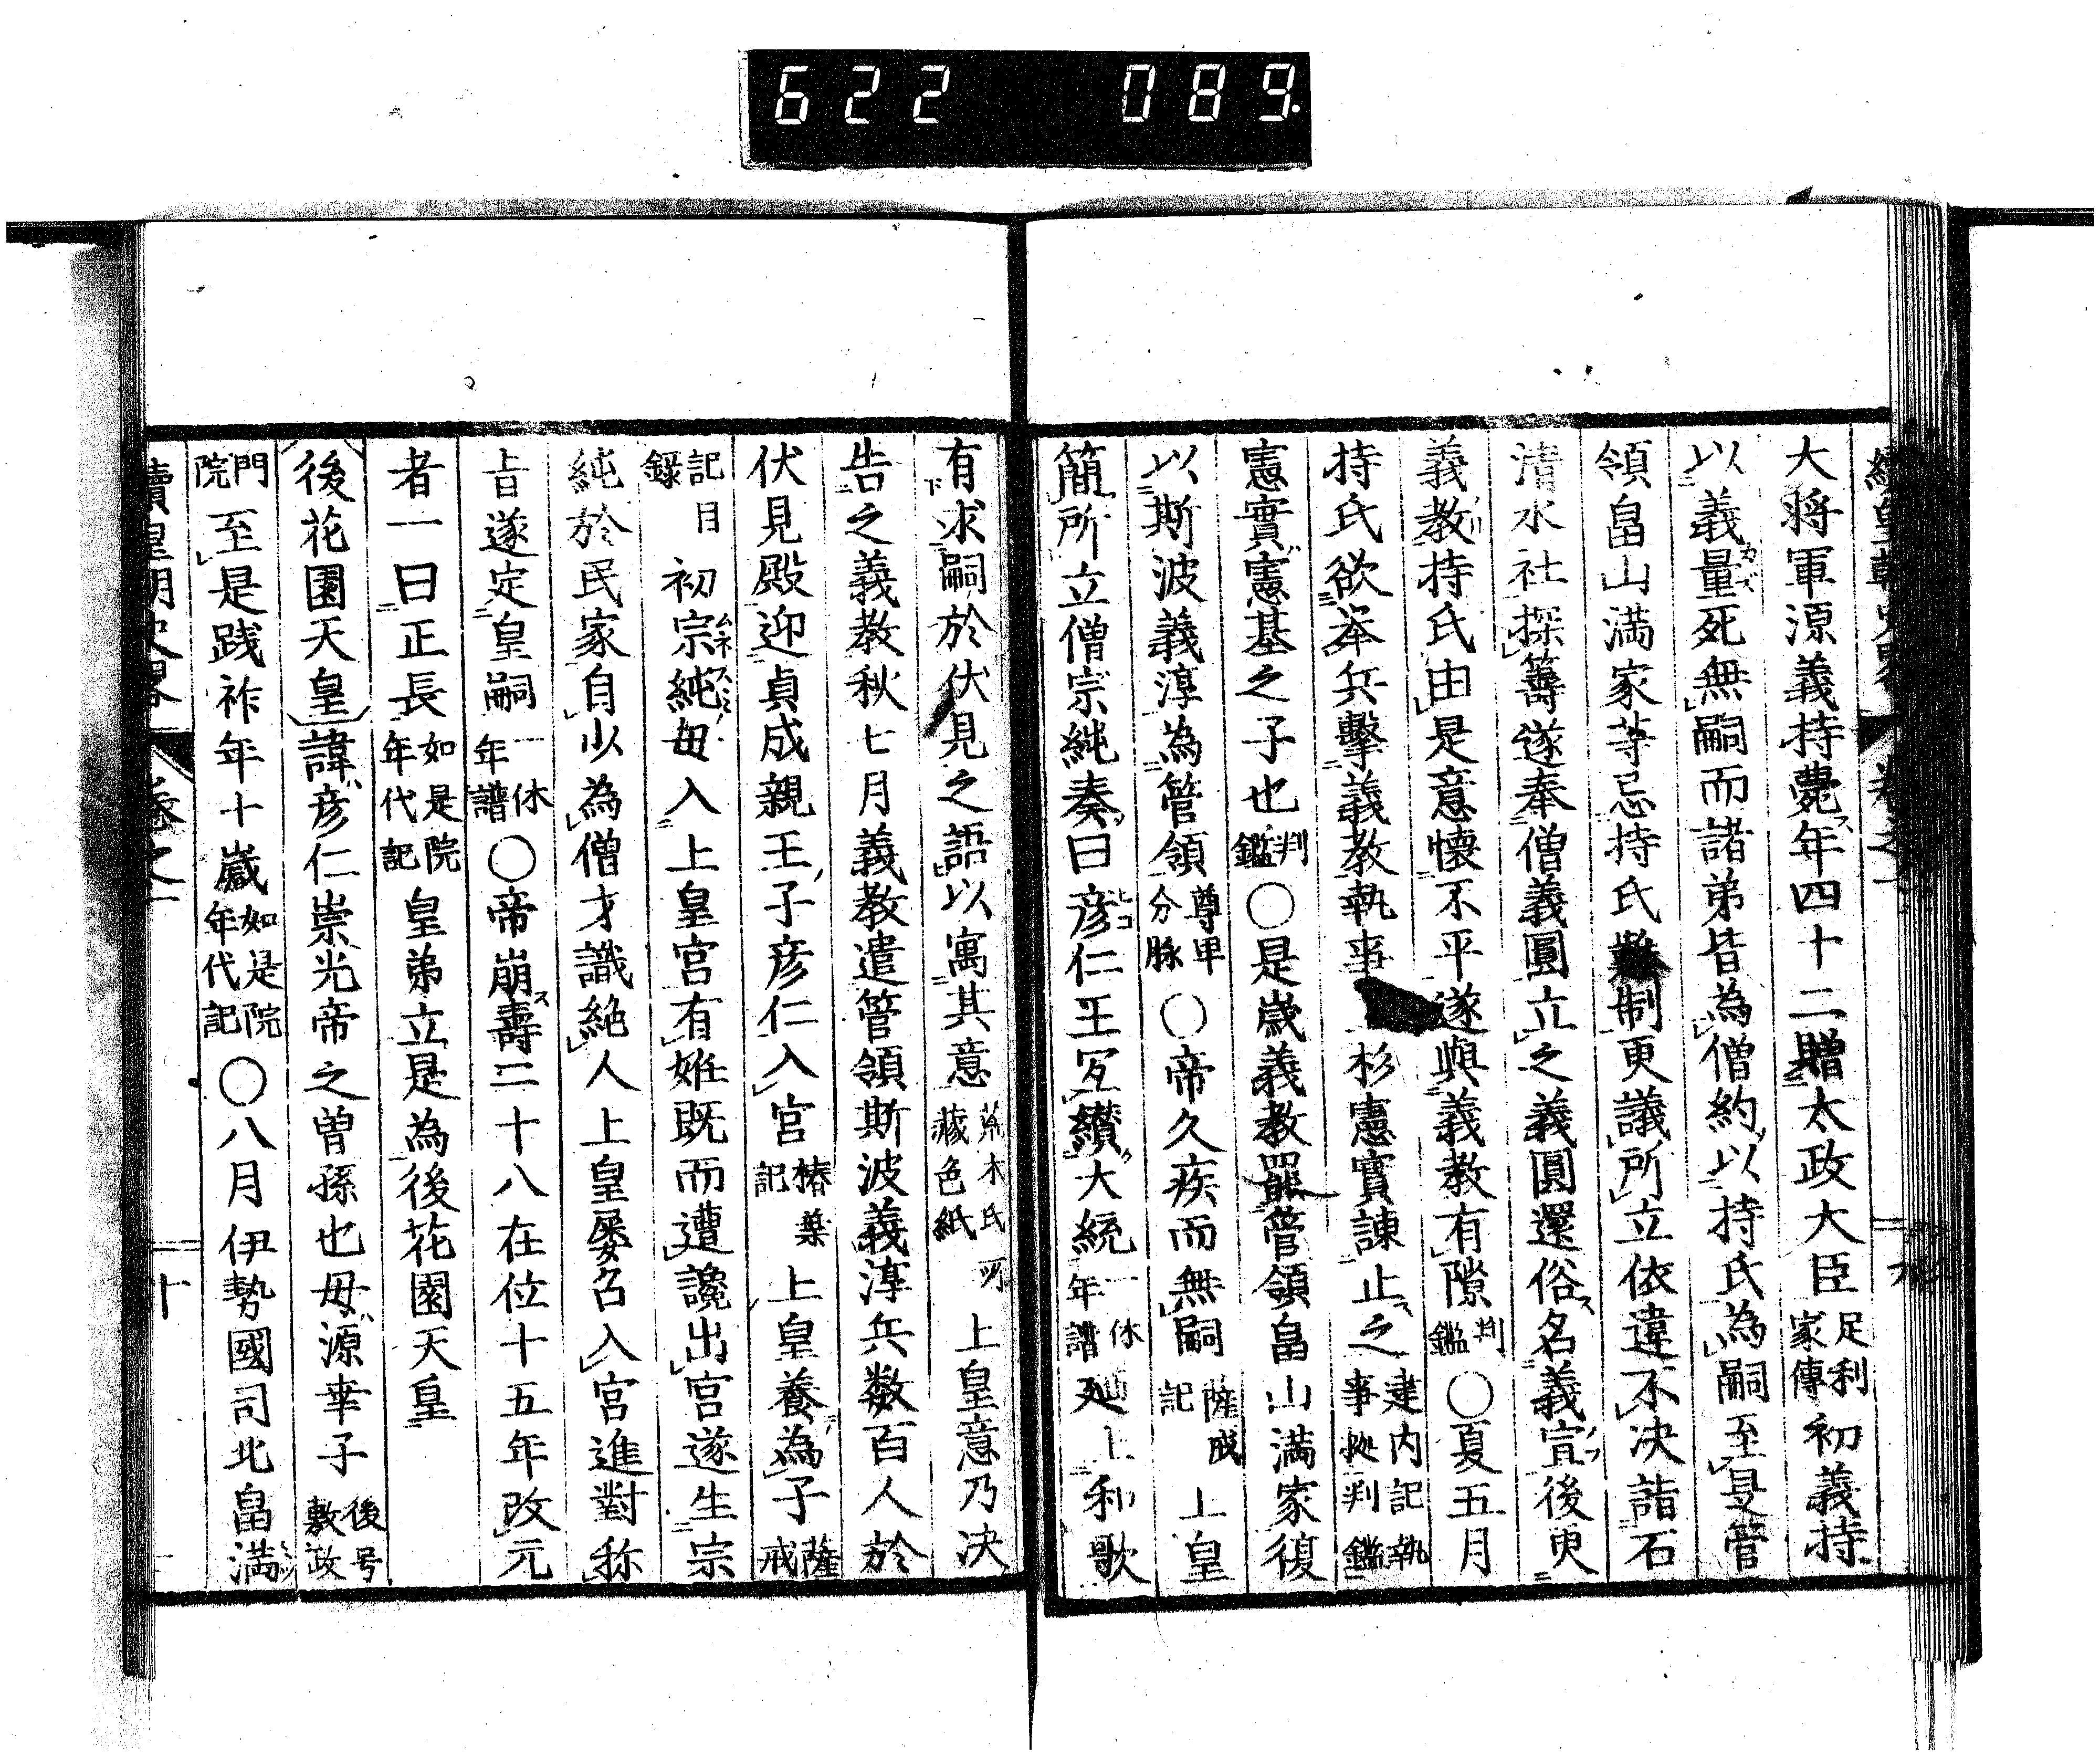 622 089
大将軍源義持薨年四十二贈太政大臣足利家傳初義持
以義量死無嗣而諸弟皆為僧約以持氏為嗣至是管
領畠山満家等忌持氏難制更議所立依違不决詣石
清水社探籌遂奉僧義圓立之義圓還俗名義宣後更
義教持氏由是意懐不平遂與義教有隙判鑑〇夏五月
持氏欲挙兵撃義教執事上杉憲實諌止之建内記執事拠判鑑
憲實憲基之子也判鑑〇是歳義教罷管領畠山満家復
以斯波義淳為管領尊卑分脉〇帝久疾而無嗣薩戒記上皇
簡所立僧宗純奏曰彦仁王宜纉大統一休年譜又上和歌
有求嗣於伏見之語以寓其意荒木氏所藏色紙上皇意乃决
告之義教秋七月義教遣管領斯波義淳兵数百人於
伏見殿迎貞成親王子彦仁入宮椿葉記上皇養為子薩戒
記目録初宗純母入上皇宮有娠既而遭讒出宮遂生宗
純於民家自少為僧才識絶人上皇屡召入宮進對称
旨遂定皇嗣一休年譜〇帝崩壽二十八在位十五年改元
者一曰正長如是院年代記皇弟立是為後花園天皇
後花園天皇諱彦仁崇光帝之曽孫也母源幸子後号敷政
門院至是踐祚年十歳如是院年代記〇八月伊勢國司北畠満
續皇朝史畧 巻之一 十